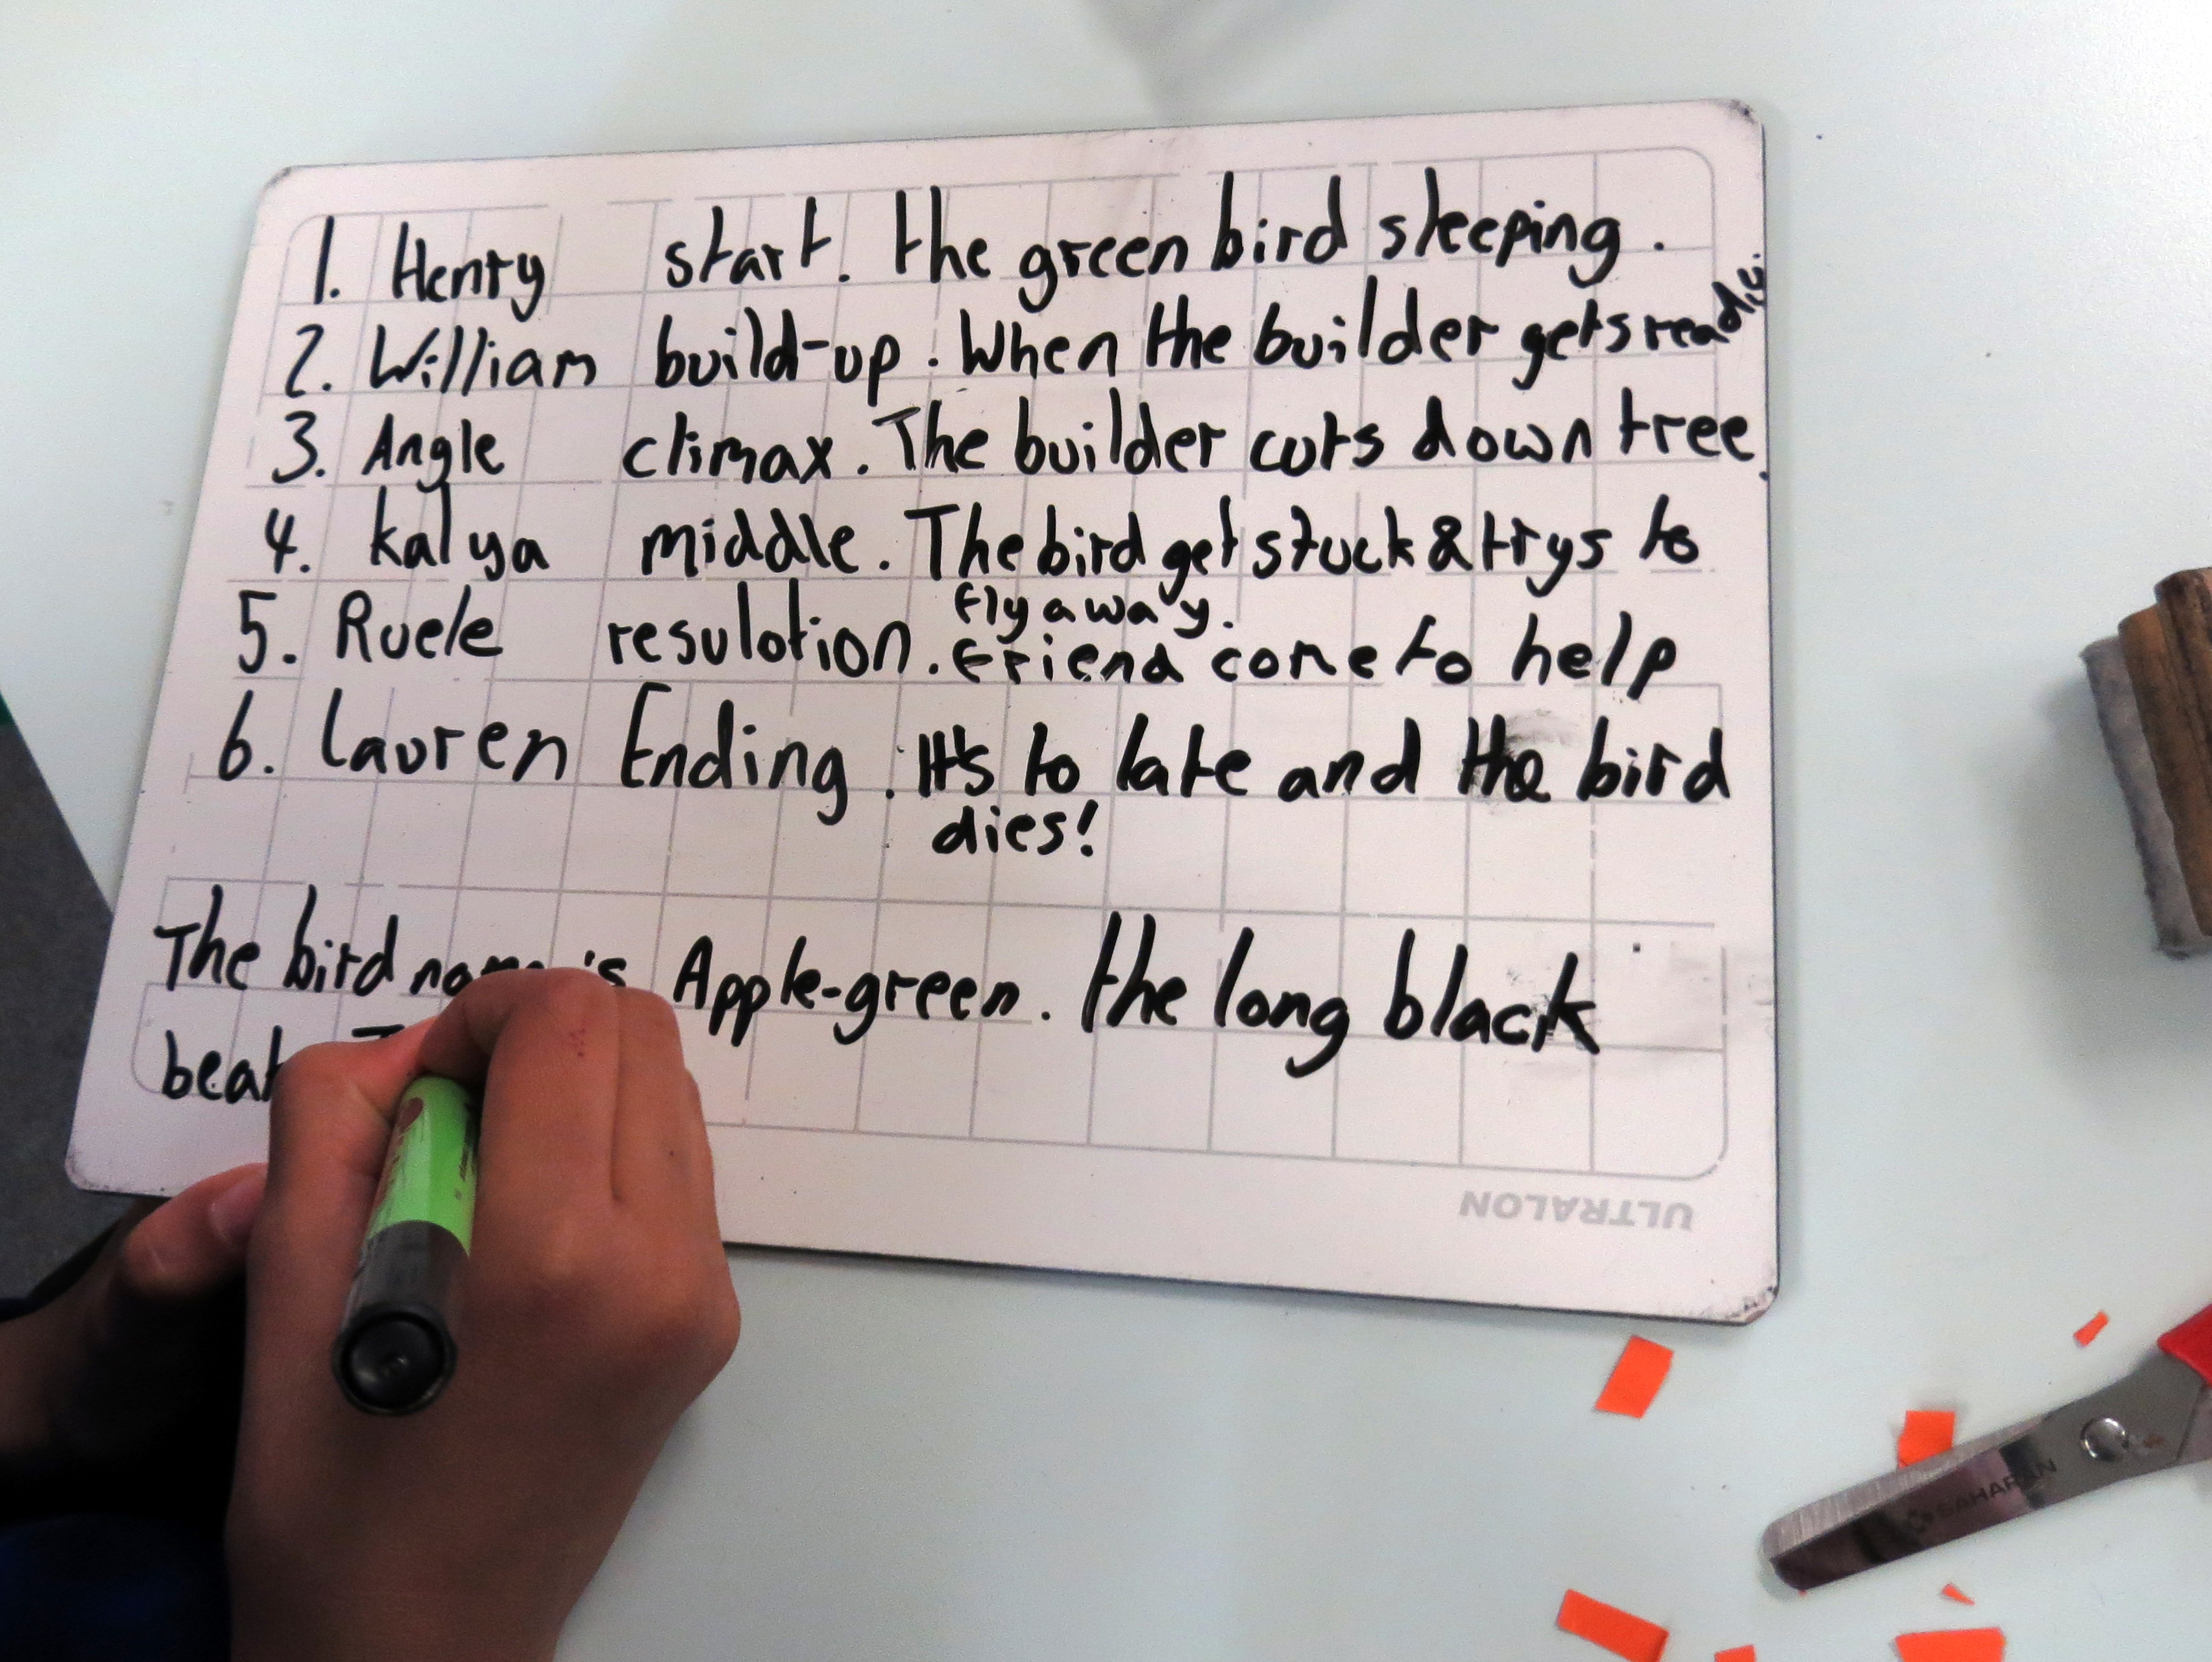 1. Henry start. the green bird sleeping.
2. William build-up. When the builder gets ready.
3. Angle climax. The builder cuts down tree.
4. kalya middle. The bird get stuck & trys to
fly away.
5. Ruele resulotion. friend come to help
6. Lauren Ending. It's to late and the bird
dies!
The bird is Apple-green. the long black
ULTRALON
SAHARAN